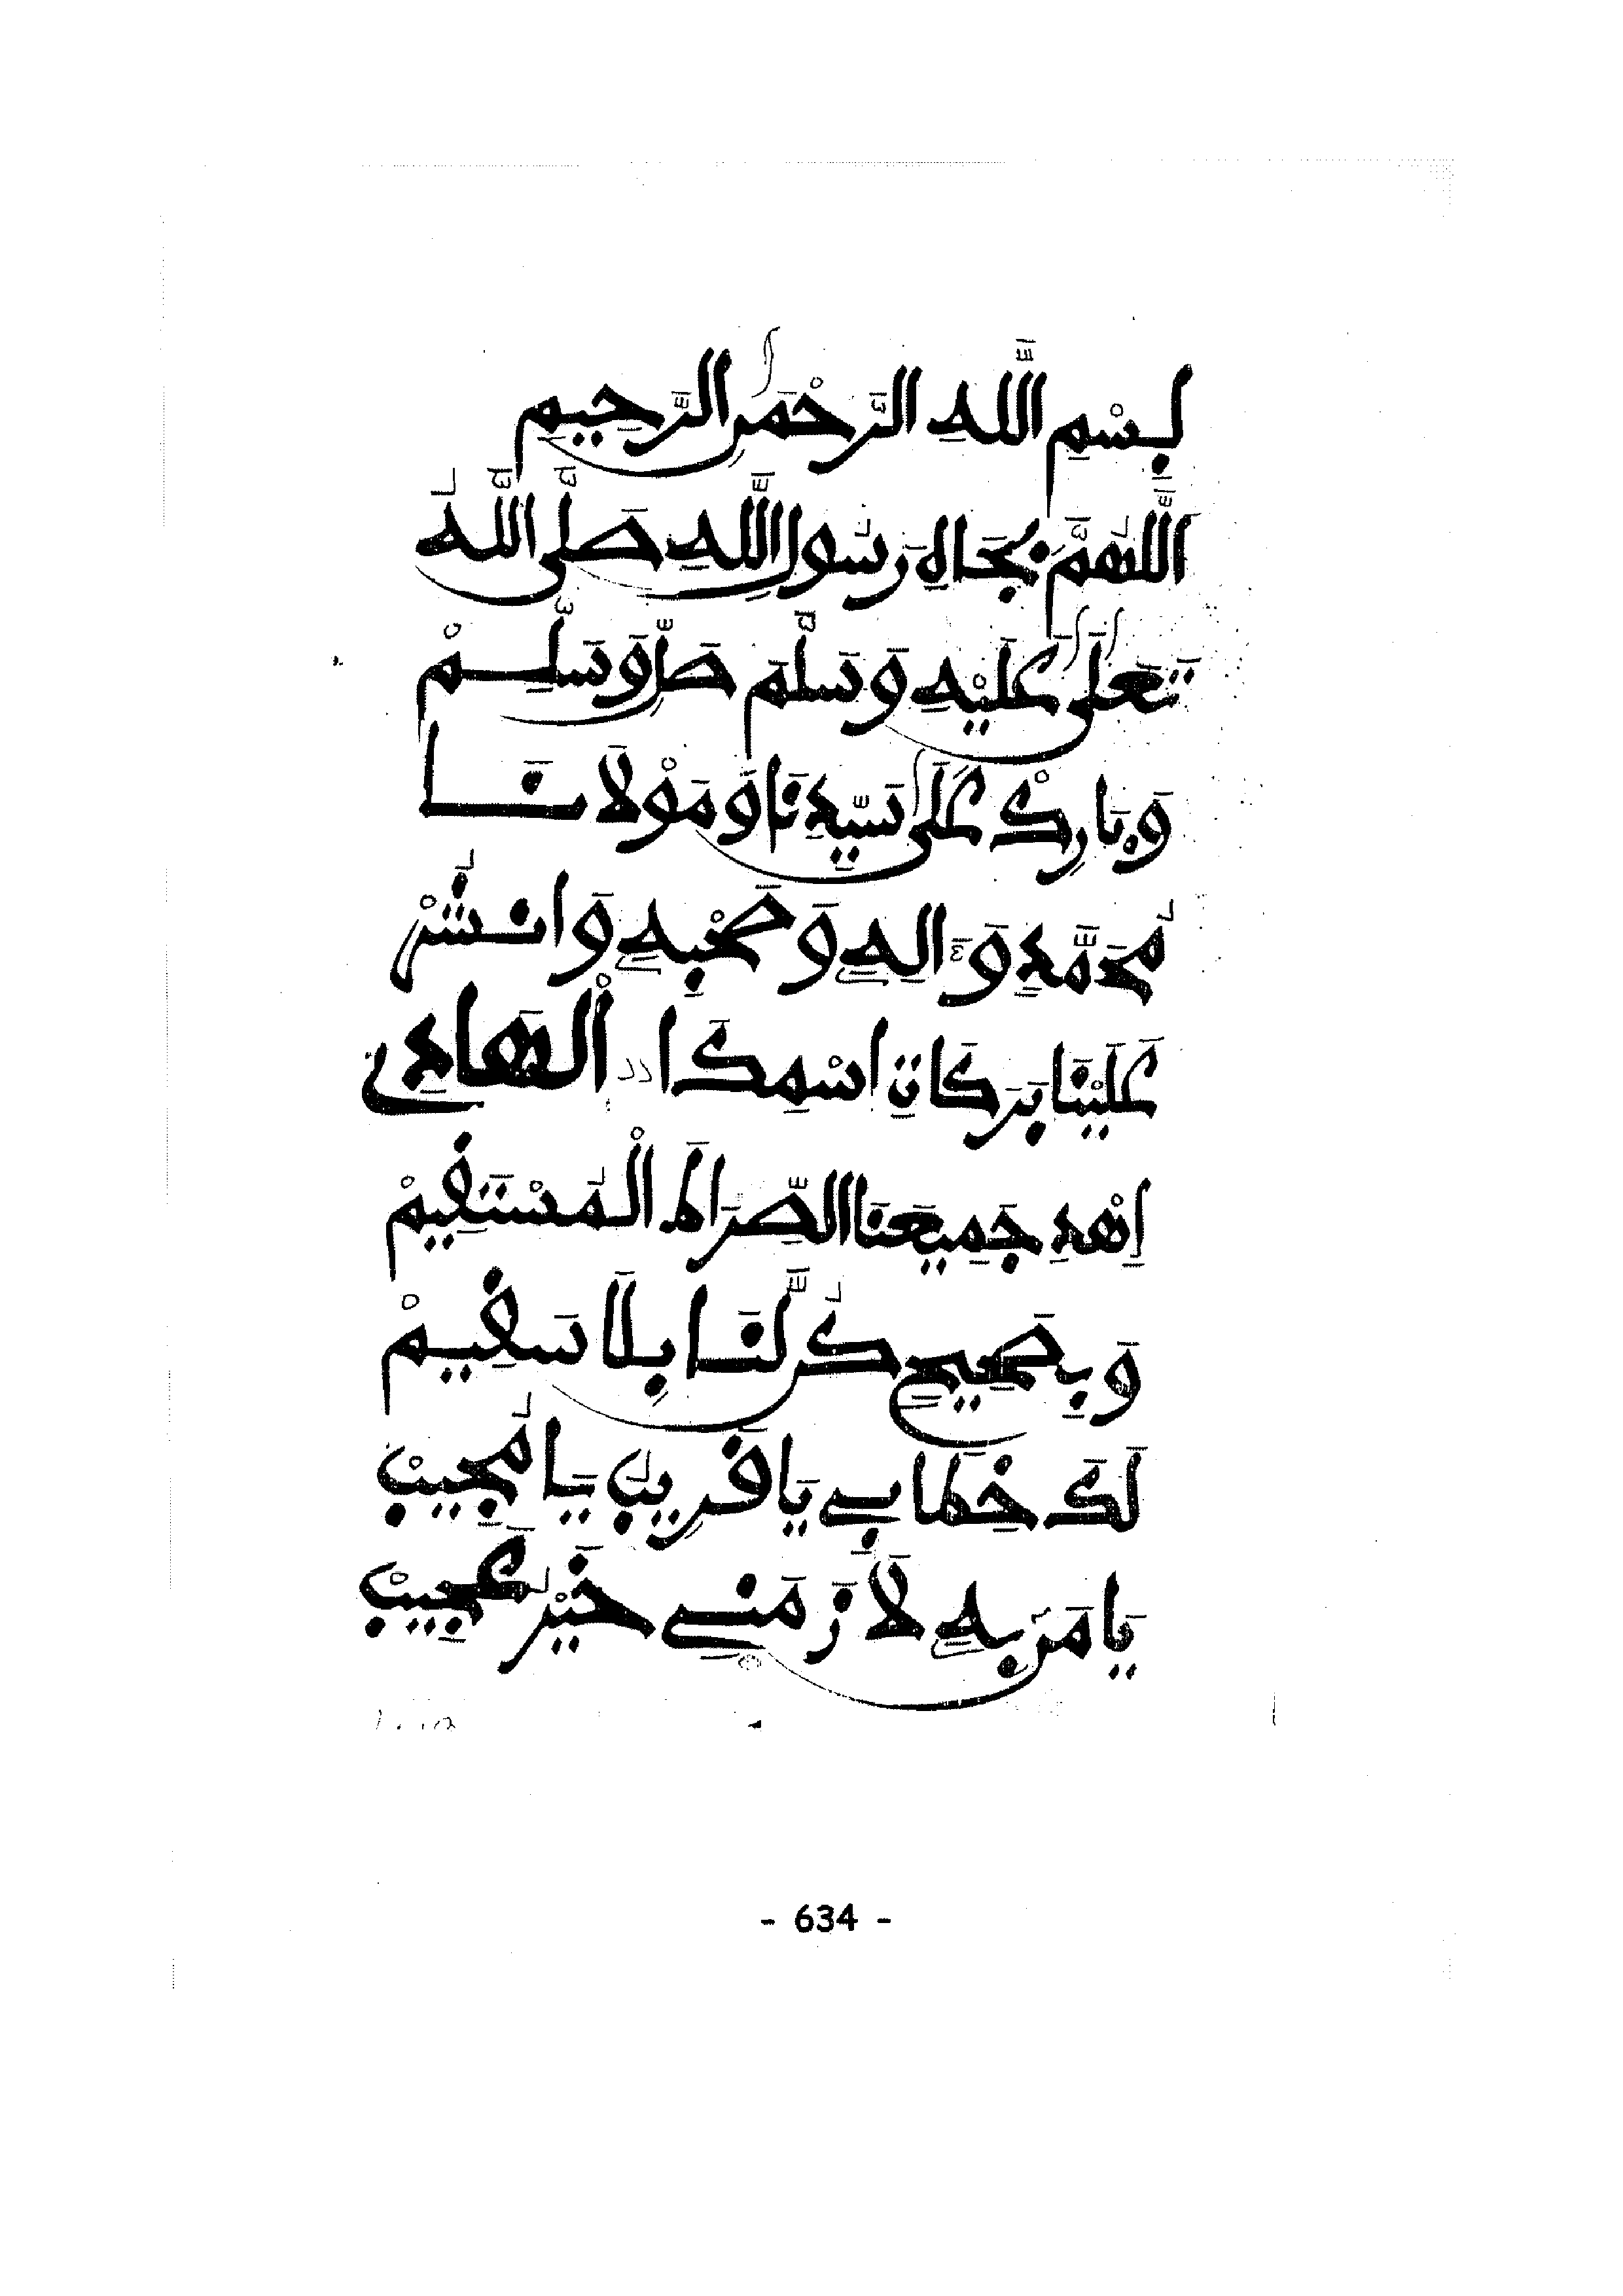 بِسْمِ اللَّهِ الرَّحْمَٰنِ الرَّحِيمِ
اللَّهُمَّ بِجَاهِ رَسُولِ اللَّهِ صَلَّى اللَّهُ
تَعَالَىٰ عَلَيْهِ وَسَلَّمَ صَلِّ وَسَلِّمْ
وَبَارِكْ عَلَىٰ سَيِّدِنَا وَمَوْلَانَا
مُحَمَّدٍ وَّءَالِهِ وَصَحْبِهِ وَانشُرْ
عَلَيْنَا بَرَكَاتِ اسْمِكَ الْهَادِي
اِهْدِ جَمِيعَنَا الصِّرَاطَ الْمُسْتَقِيمْ
وَبِصَحِيحٍ كُن لَّنَا بِلَا سَقِيمْ
لَكَ خِطَابِي يَا قَرِيبُ يَا مُجِيبْ
يَا مَن بِهِ لَازَمَنِي خَيْرٌ عَجِيبْ
- 634 -